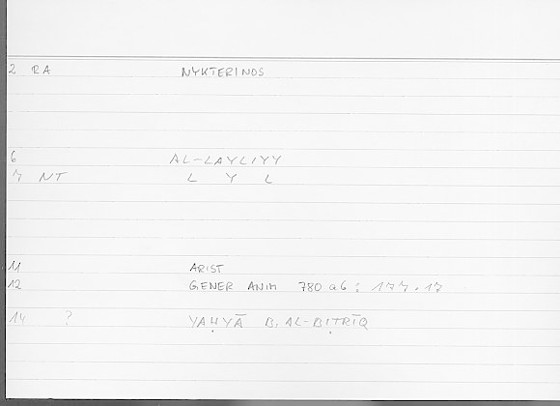 2 RA NYKTERINOS
6 AL-LAYLIYY
7 NT L Y L
11 ARIST
12 GENER ANIM 780 a6 : 177.17
14 ? YAḤYĀ B. AL-BIṬRĪQ